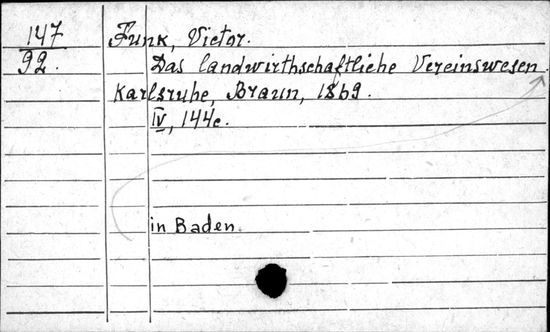 147 Funk, Victor.
92. Das landwirthschaftliche Vereinswesen.
Karlsruhe, Braun, 1869.
IV, 144c.
in Baden.